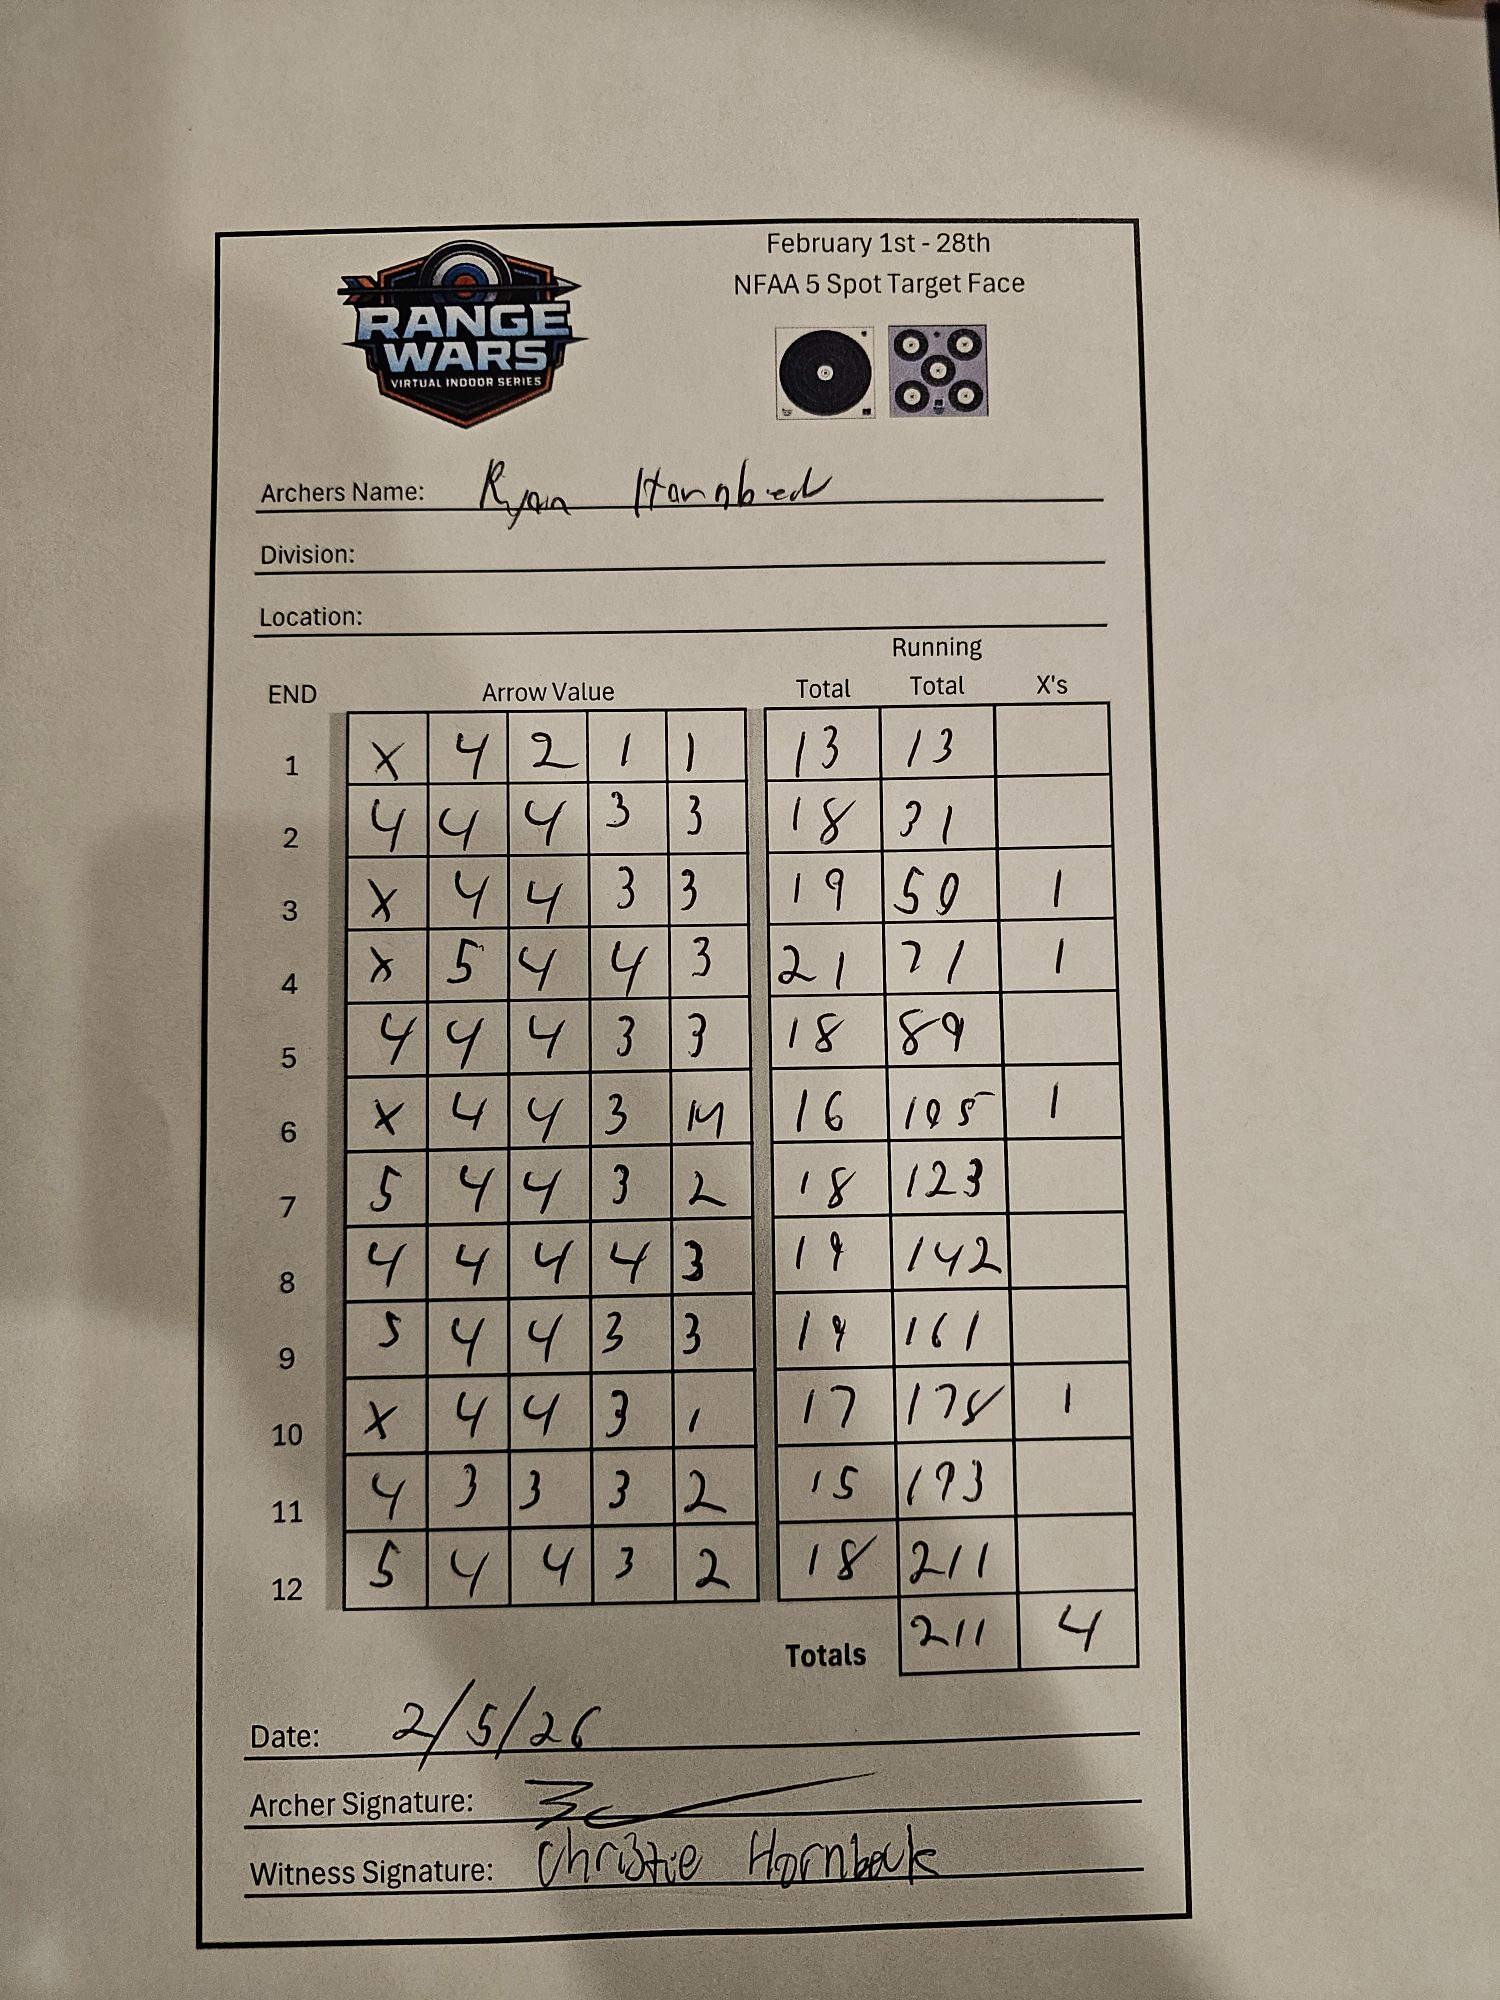 February 1st - 28th
NFAA 5 Spot Target Face
RANGE
WARS
VIRTUAL INDOOR SERIES
Archers Name: Ryan
Division:
Location:
END Arrow Value Total Running Total X's
1 X 4 2 1 1 13 13
2 4 4 4 3 3 18 31
3 X 4 4 3 3 19 50 1
4 X 5 4 4 3 21 71 1
5 4 4 4 3 3 18 89
6 X 4 4 3 M 16 105 1
7 5 4 4 3 2 18 123
8 4 4 4 4 3 19 142
9 5 4 4 3 3 19 161
10 X 4 4 3 1 17 178 1
11 4 3 3 3 2 15 193
12 5 4 4 3 2 18 211
Totals 211 4
Date: 2/5/26
Archer Signature:
Witness Signature: Christie Hornback